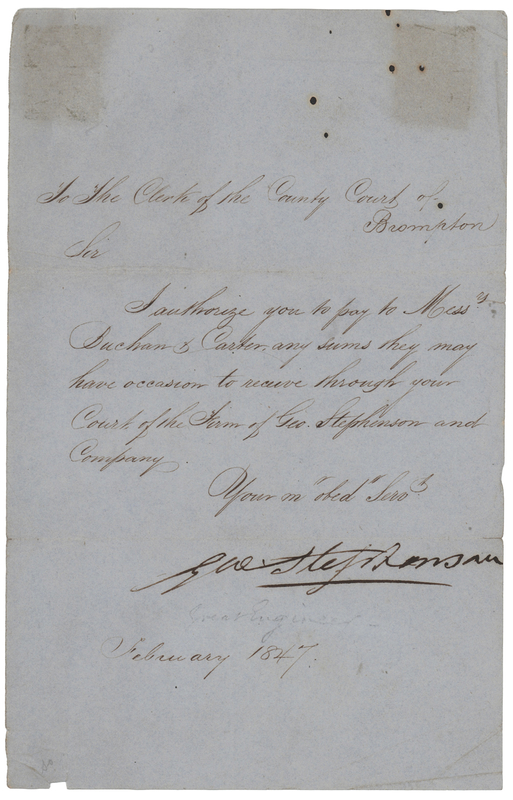 To The Clerk of the County Court of
Brompton
Sir
I authorize you to pay to Messrs
Buchan & Carter, any sums they may
have occasion to receive through your
Court of the Firm of Geo. Stephenson and
Company
Your mo obedt Servt
Geo Stephenson
Great Engineer
February 1847.